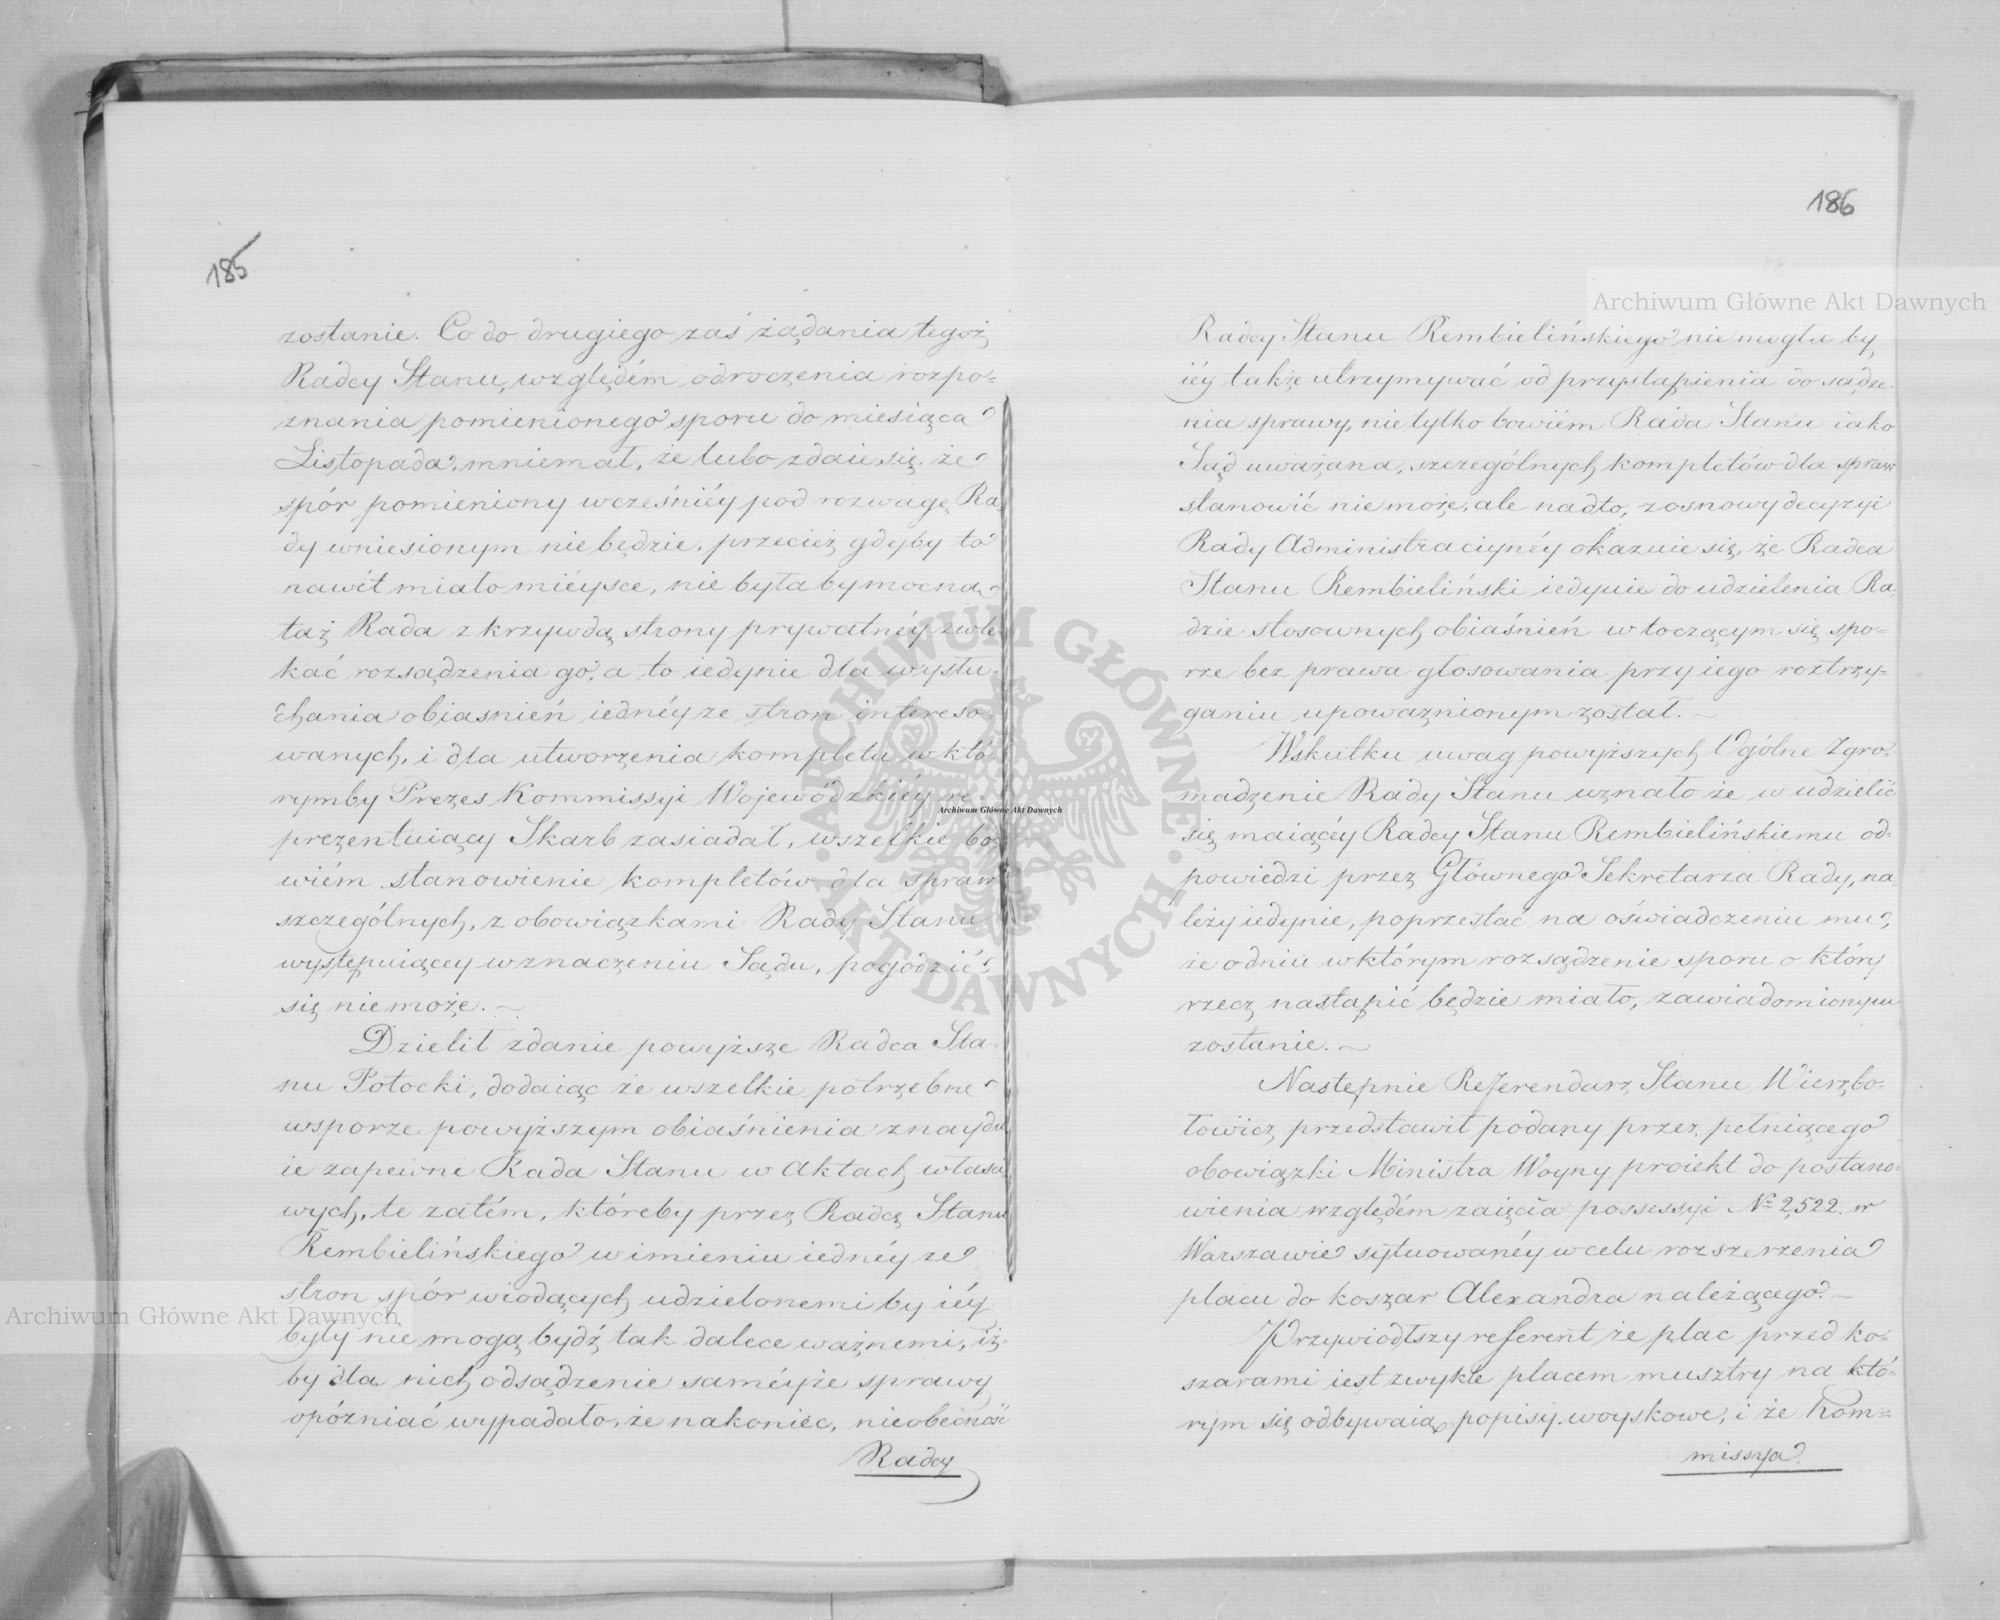 185
zostanie. Co do drugiego zaś żądania tegoż
Radcy Stanu, względém odroczenia rozpo-
znania pomienionego sporu do miesiąca
Listopada, mniemał, że lubo zdaie się, że
spór pomieniony wcześniéy pod rozwagę Ra-
dy wniesionym nie będzie, przecież gdyby to
nawét miało mieysce, nie byłaby mocna
taż Rada z krzywdą strony prywatnéy zwle-
kać rozsądzenia go, a to iedynie dla wysłu-
chania obiasnień iednéy ze stron intereso-
wanych, i dla utworzenia kompletu w któ-
rymby Prezes Kommissyi Wojewódzkiéy re-
prezentuiący Skarb zasiadał, wszelkie bo-
wiém stanowienie kompletów dla spraw
szczególnych, z obowiązkami Rady Stanu
występuiącey w znaczeniu Sądu, pogodzić
się nie może. —
Dzielił zdanie powyższe Radca Sta-
nu Potocki, dodaiąc że wszelkie potrzebne
w sporze powyższym obiaśnienia znaydu-
ie zapewne Rada Stanu w Aktach własci-
wych, te zatém, któreby przez Radcę Stanu
Rembielińskiego w imieniu iednéy ze
stron spór wiodących udzielonemi by iéy
były nie mogą bydź tak dalece ważnemi, iż-
by dla nich odsądzenie saméyże sprawy
opóźniać wypadało, że nakoniec, nieobecność
Radcy
186
Radcy Stanu Rembielińskiego nie mogła by
iéy także utrzymywać od przystąpienia do sądze-
nia sprawy, nietylko bowiém Rada Stanu iako
Sąd uważana, szczególnych kompletów dla spraw
stanowić nie może, ale nadto, z osnowy decyzyi
Rady Administracyinéy okazuie się, że Radca
Stanu Rembieliński iedynie do udzielenia Ra-
dzie stosownych obiaśnień w toczącym się spo-
rze bez prawa głosowania przy iego roztrzy-
ganiu upoważnionym został. —
Wskutku uwag powyższych Ogólne Zgro-
madzenie Rady Stanu uznało że w udzielić
się maiącéy Radcy Stanu Rembielińskiemu od-
powiedzi przez Głównego Sekretarza Rady, na-
leży iedynie, poprzestać na oświadczeniu mu,
że o dniu w którym rozsądzenie sporu o który
rzecz nastąpić będzie miało, zawiadomionym
zostanie. —
Następnie Referendarz Stanu Wierzbo-
łowicz przedstawił podany przez pełniącego
obowiązki Ministra Woyny proiekt do postano-
wienia względém zaięcia possessyi No 2,522. w
Warszawie sytuowanéy w celu rozszerzenia
placu do koszar Alexandra należącego. —
Przywiódłszy referent że plac przed ko-
szarami iest zwykle placem musztry na któ-
rym się odbywaią popisy woyskowe, i że Kom-
missya
Archiwum Główne Akt Dawnych
Archiwum Główne Akt Dawnych
Archiwum Główne Akt Dawnych
ARCHIWUM GŁÓWNE
AKT DAWNYCH